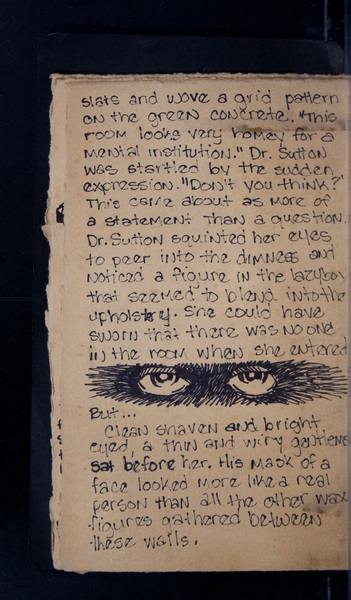 slats and wove a grid pattern
on the green concrete. "This
room looks very homey for a
mental institution." Dr. Sutton
was startled by the sudden
expression. "Don't you think?"
This came about as more of
a statement than a question.
Dr. Sutton squinted her eyes
to peer into the dimness and
noticed a figure in the lazyboy
that seemed to blend into the
upholstery. She could have
sworn that there was no one
in the room when she entered
But...
Clean shaven and bright
eyed, a thin and wiry gentlema
sat before her. His mask of a
face looked more like a real
person than all the other wax
figures gathered between
these walls.